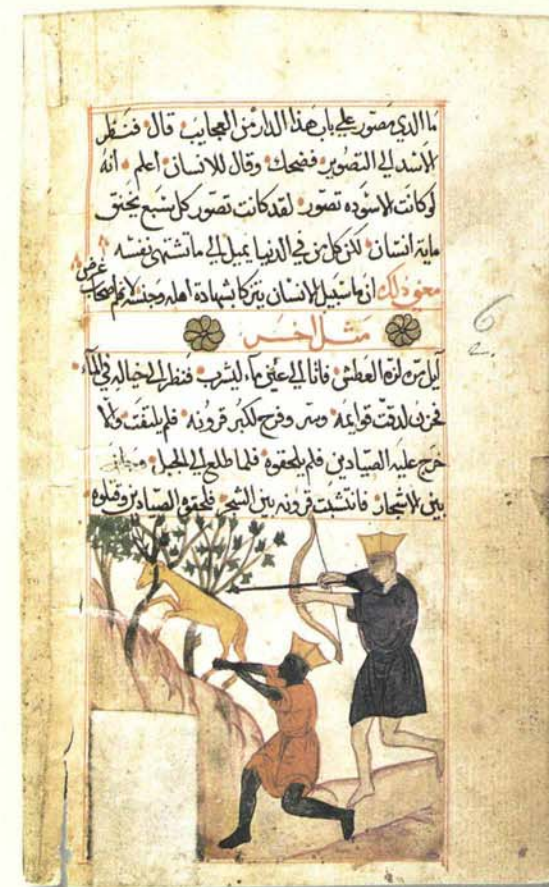 ما الذي مصور علي باب هذا الدار من العجايب قال فنظر
الاسد الي التصوير فضحك وقال للانسان اعلم انه
لو كانت الاسوده تصور لقد كانت تصور كل سبع يخنق
ماية انسان لكن كل من في الدنيا يميل الي ما تشتهي نفسه
معني ذلك انه ما سبيل الانسان يتزكا بشهادة اهله وجنسه لانهم اصحاب غرض
مثل اخر
ايل مره لزه العطش فاتا الي عين مآء ليشرب فنظر الي خياله في المآء
فحزن لدقت قوايمه وسر وفرح لكبر قرونه فلم يلتفت والا
خرج عليه الصيادين فلم يلحقوه فلما طلع الي الجبل
بين الاشجار فانتشبت قرونه بين الشجر فلحقوه الصيادين وقتلوه